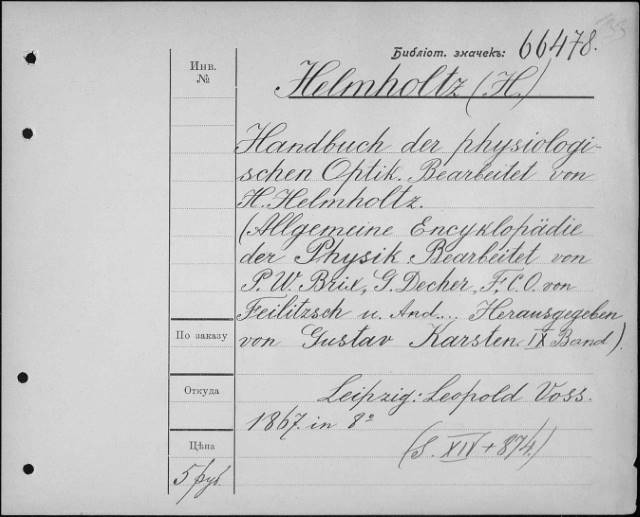 Библіот. значекъ: 66478.
Инв. №
Helmholtz (H.)
Handbuch der physiologi-
schen Optik. Bearbeitet von
H. Helmholtz.
(Allgemeine Encyklopädie
der Physik. Bearbeitet von
P. W. Brix, G. Decher, F. C. O. von
Feilitzsch u. And... Herausgegeben
По заказу
von Gustav Karsten. IX Band).
Откуда
Leipzig: Leopold Voss.
1867. in 8º
Цѣна
(S. XIV + 874.)
5 руб.